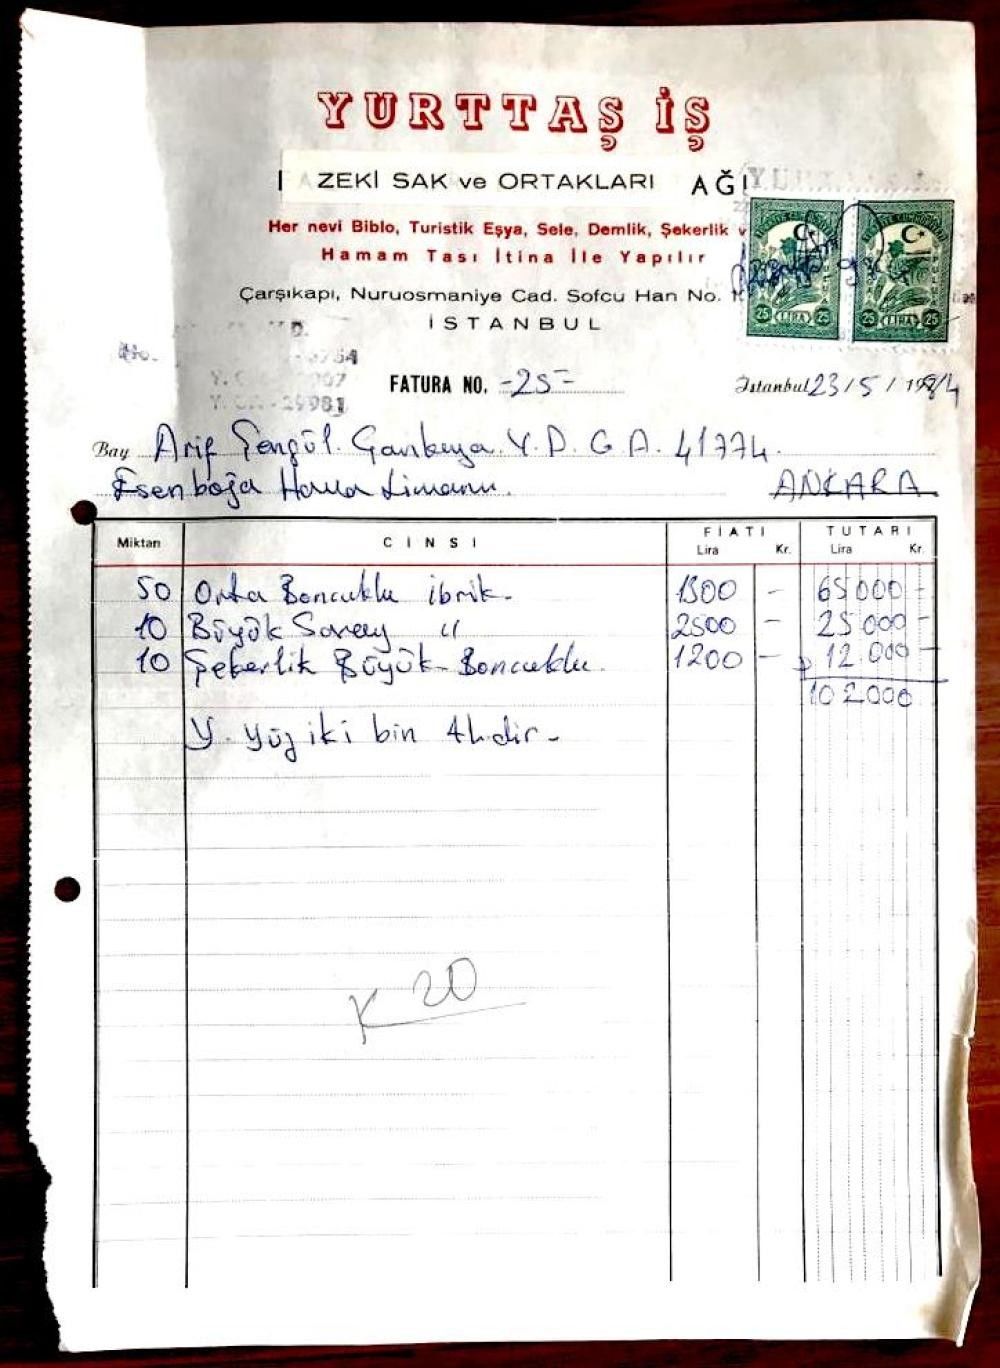 YURTTAŞ İŞ
ZEKİ SAK ve ORTAKLARI AĞI
Her nevi Biblo, Turistik Eşya, Sele, Demlik, Şekerlik v
Hamam Tası İtina İle Yapılır
Çarşıkapı, Nuruosmaniye Cad. Sofcu Han No.
İSTANBUL
25 LİRA 25
25 LİRA 25
No.
FATURA NO. -25-
İstanbul 23/5/1984
Bay Arif Şengül. Y. D. G A. 41774.
Esenboğa Hava Limanı. ANKARA
Miktarı CİNSİ FİATI TUTARI
Lira Kr. Lira Kr.
50 Orta Boncuklu ibrik. 1300 - 65000 -
10 Büyük Saray " 2500 - 25000 -
10 Şekerlik Büyük Boncuklu. 1200 - 12.000 -
102000
Y. Yüz iki bin TLdir.
K 20